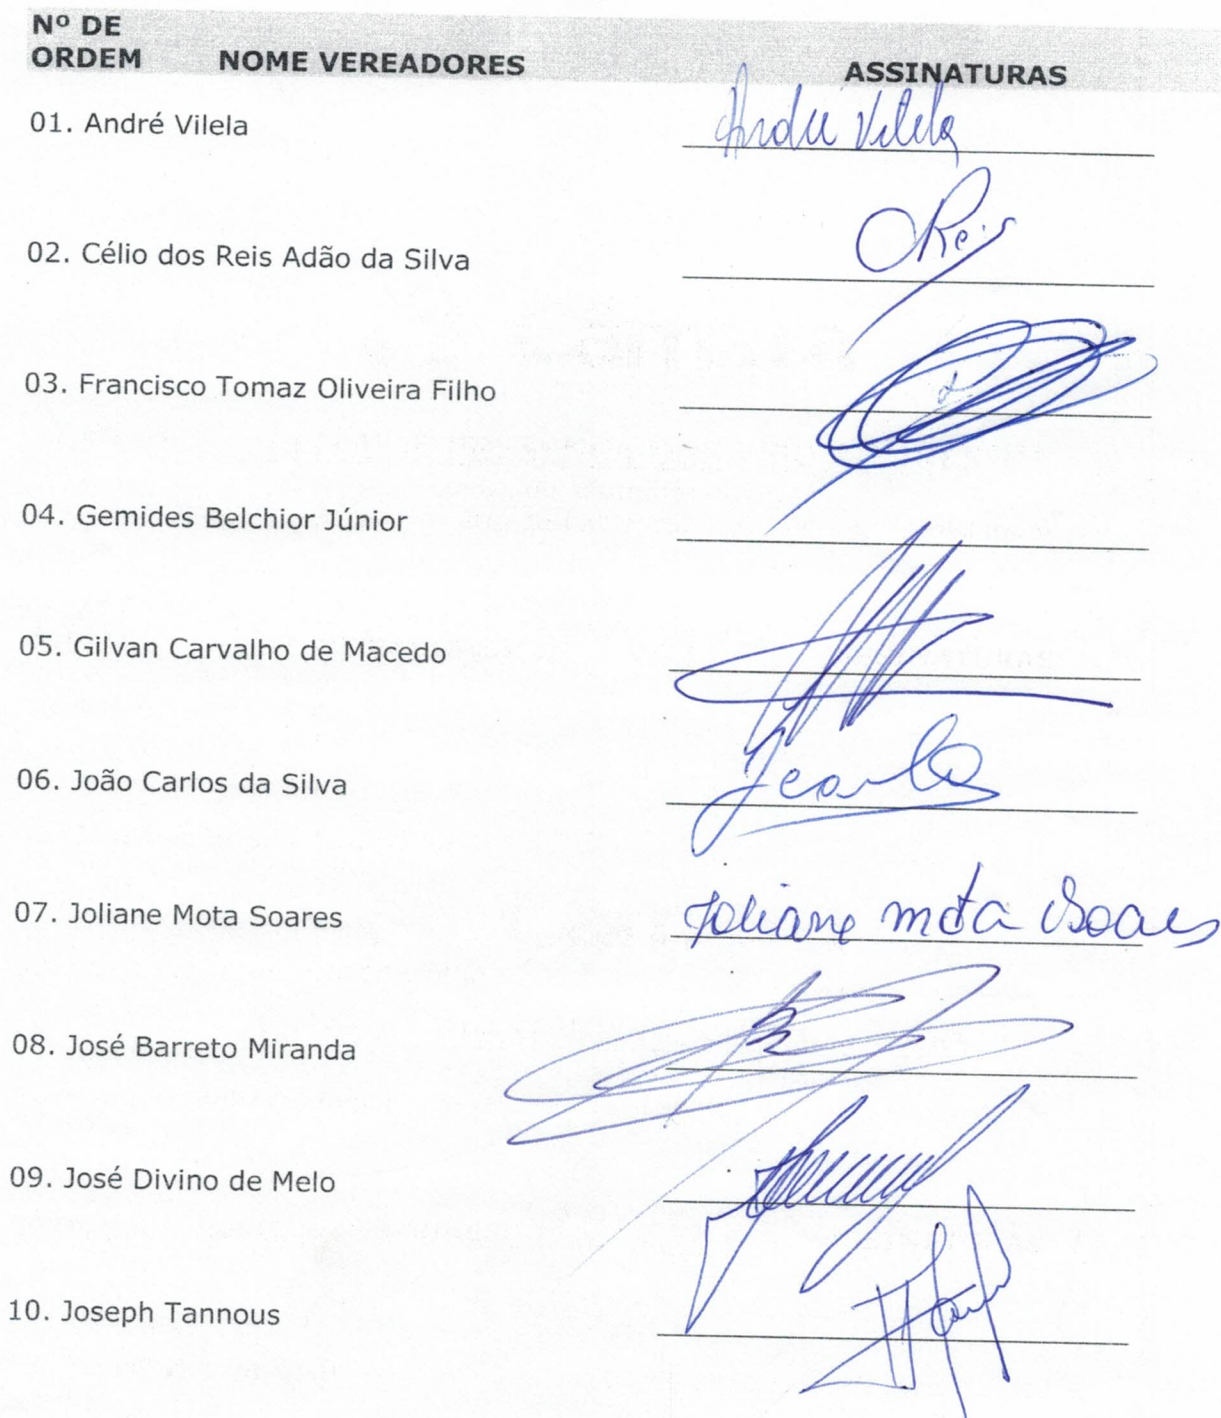 Nº DE
ORDEM NOME VEREADORES ASSINATURAS
01. André Vilela André Vilela
02. Célio dos Reis Adão da Silva CReis
03. Francisco Tomaz Oliveira Filho
04. Gemides Belchior Júnior
05. Gilvan Carvalho de Macedo
06. João Carlos da Silva
07. Joliane Mota Soares Joliane mota Soares
08. José Barreto Miranda
09. José Divino de Melo
10. Joseph Tannous